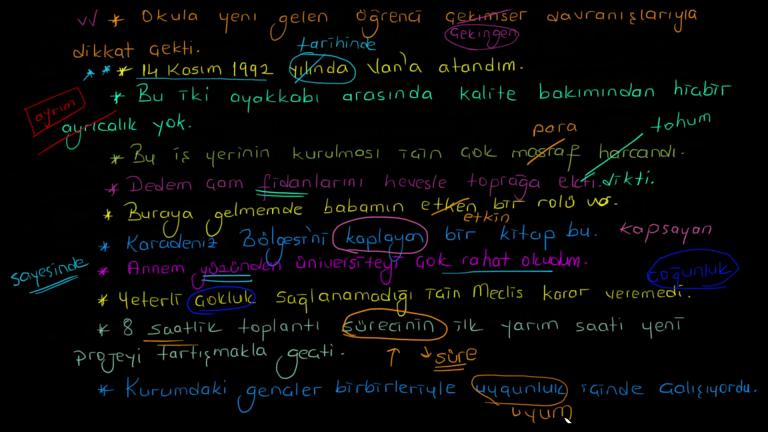 * Okula yeni gelen öğrenci çekimser davranışlarıyla
çekingen
dikkat çekti.
tarihinde
* * * 14 Kasım 1992 yılında Van'a atandım.
* Bu iki ayakkabı arasında kalite bakımından hiçbir
ayrım
ayrıcalık yok.
para tohum
* Bu iş yerinin kurulması için çok masraf harcandı.
* Dedem çam fidanlarını hevesle toprağa ekti. dikti.
* Buraya gelmemde babamın etken bir rolü var.
etkin
* Karadeniz Bölgesi'ni kaplayan bir kitap bu. kapsayan
sayesinde
* Annem yüzünden üniversiteyi çok rahat okudum.
çoğunluk
* Yeterli çokluk sağlanamadığı için Meclis karar veremedi.
* 8 saatlik toplantı sürecinin ilk yarım saati yeni
projeyi tartışmakla geçti.
süre
* Kurumdaki gençler birbirleriyle uygunluk içinde çalışıyordu.
uyum